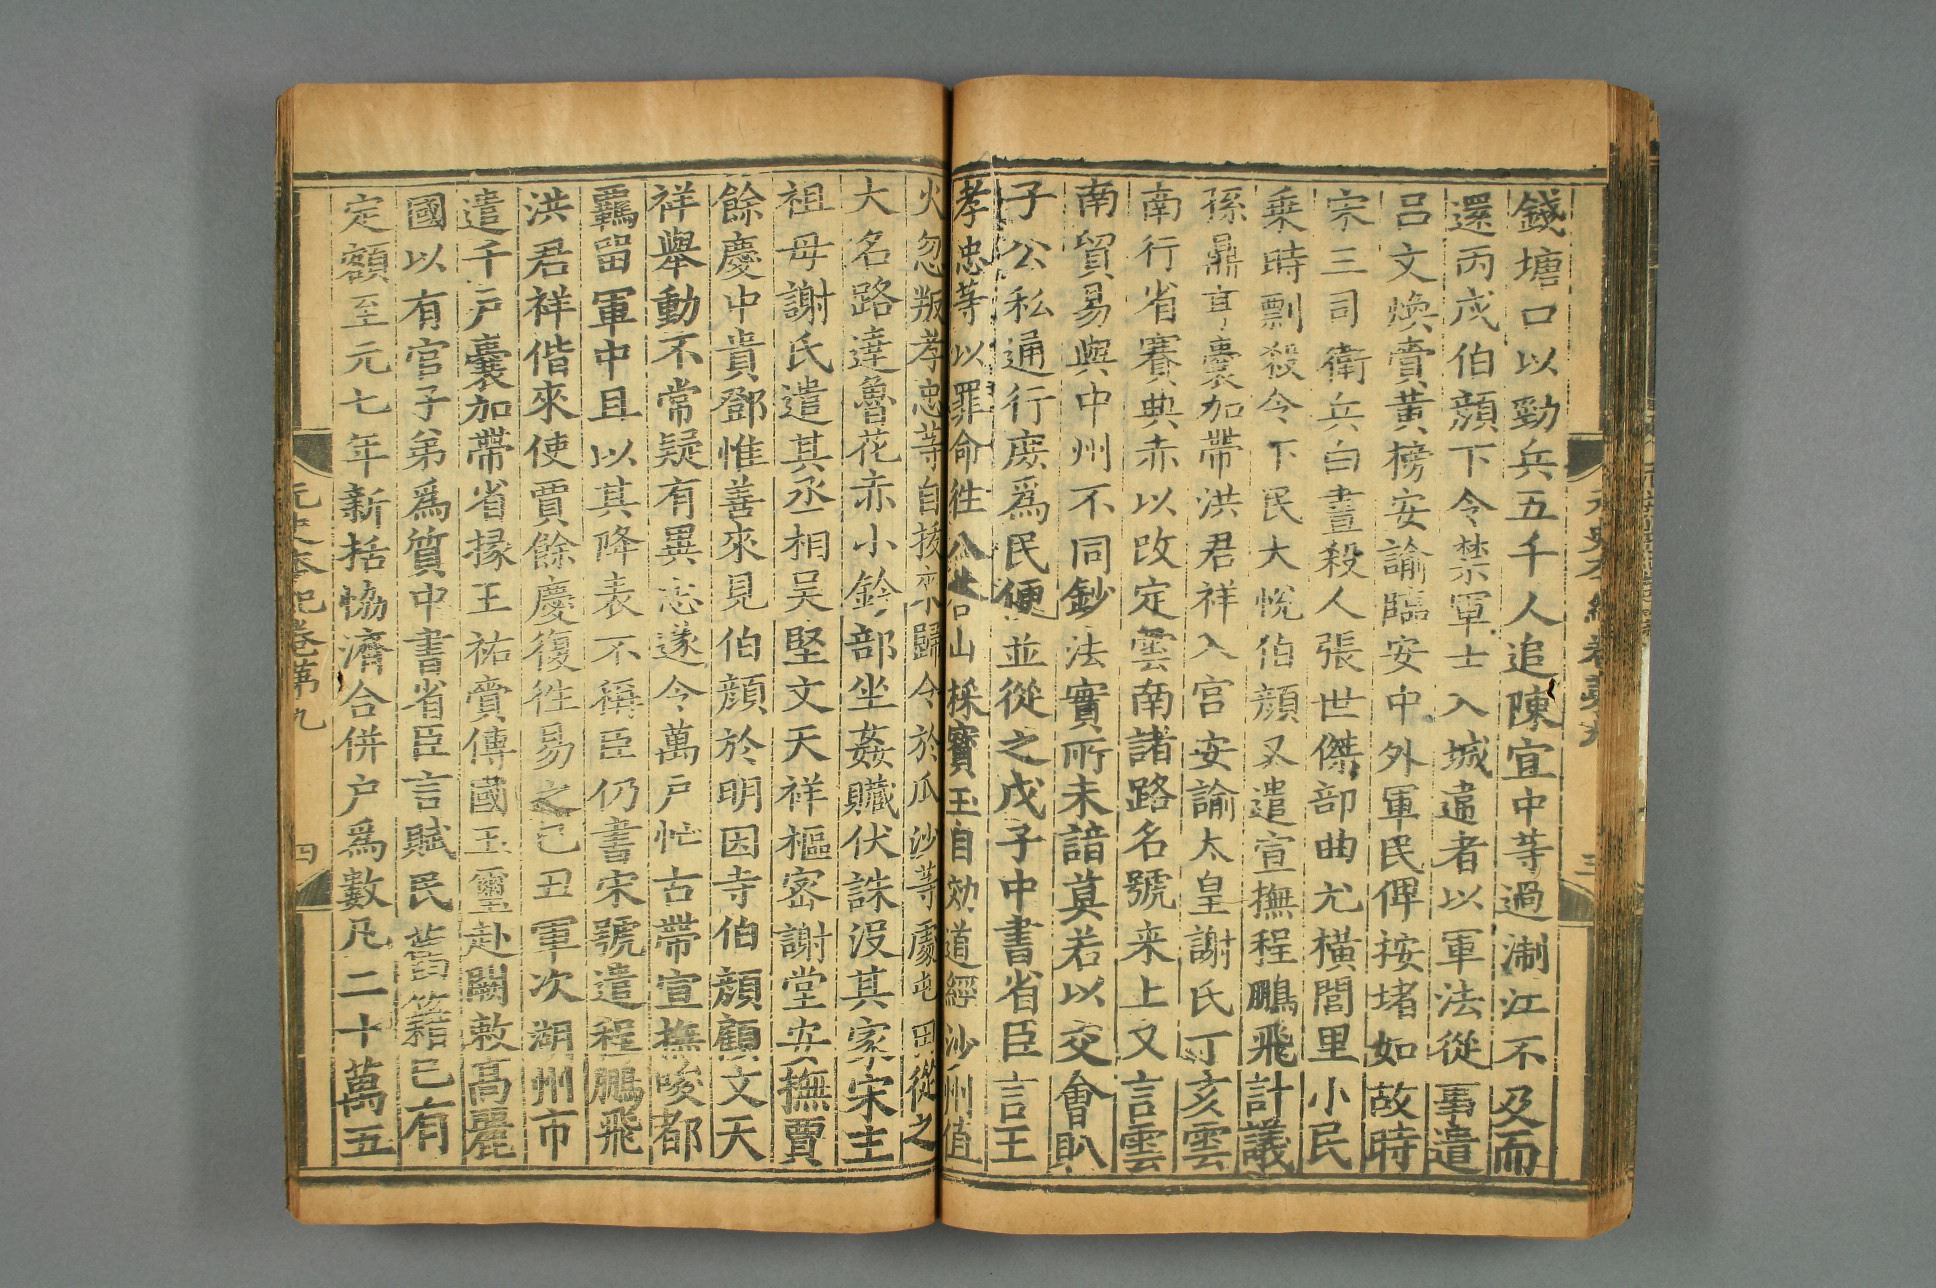 元史本紀卷第九
三
錢塘口以勁兵五千人追陳宜中等過淛江不及而
還丙戌伯顔下令禁軍士入城違者以軍法從事遣
呂文煥賫黃榜安諭臨安中外軍民俾按堵如故時
宋三司衛兵白晝殺人張世傑部曲尤橫閭里小民
乗時剽殺令下民大悅伯顔又遣宣撫程鵬飛計議
孫鼎亨囊加帶洪君祥入宮安諭太皇謝氏丁亥雲
南行省賽典赤以改定雲南諸路名號来上又言雲
南貿易與中州不同鈔法實所未諳莫若以交會𧴩
子公私通行庶爲民便並從之戊子中書省臣言王
孝忠等以罪命徃八荅山採寳玉自効道經沙州值
火忽叛孝忠等自拔來歸令於瓜沙等處屯田從之
大名路達魯花赤小鈐部坐姦贓伏誅没其家宋主
祖母謝氏遣其丞相吴堅文天祥樞宻謝堂安撫賈
餘慶中貴鄧惟善來見伯顔於明因寺伯顔顧文天
祥舉動不常疑有異志遂令萬戶忙古帶宣撫唆都
羈留軍中且以其降表不稱臣仍書宋號遣程鵬飛
洪君祥偕來使賈餘慶復徃易之己丑軍次湖州市
遣千戶囊加帶省掾王祐賫傳國玉璽赴闕敕高麗
國以有官子弟爲質中書省臣言賦民舊籍已有
定額至元七年新括恊濟合併户爲數凡二十萬五
元史本紀卷第九
四